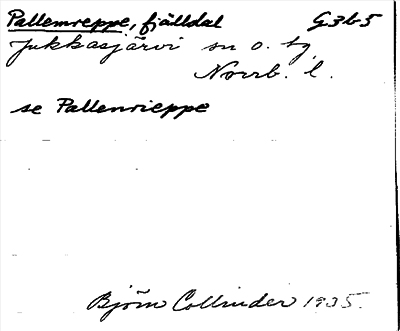 Pallemreppe, fjälldal G3b5
Jukkasjärvi sn o. tg
Norrb. l.
se Pallenrieppe
Björn Collinder 1935.